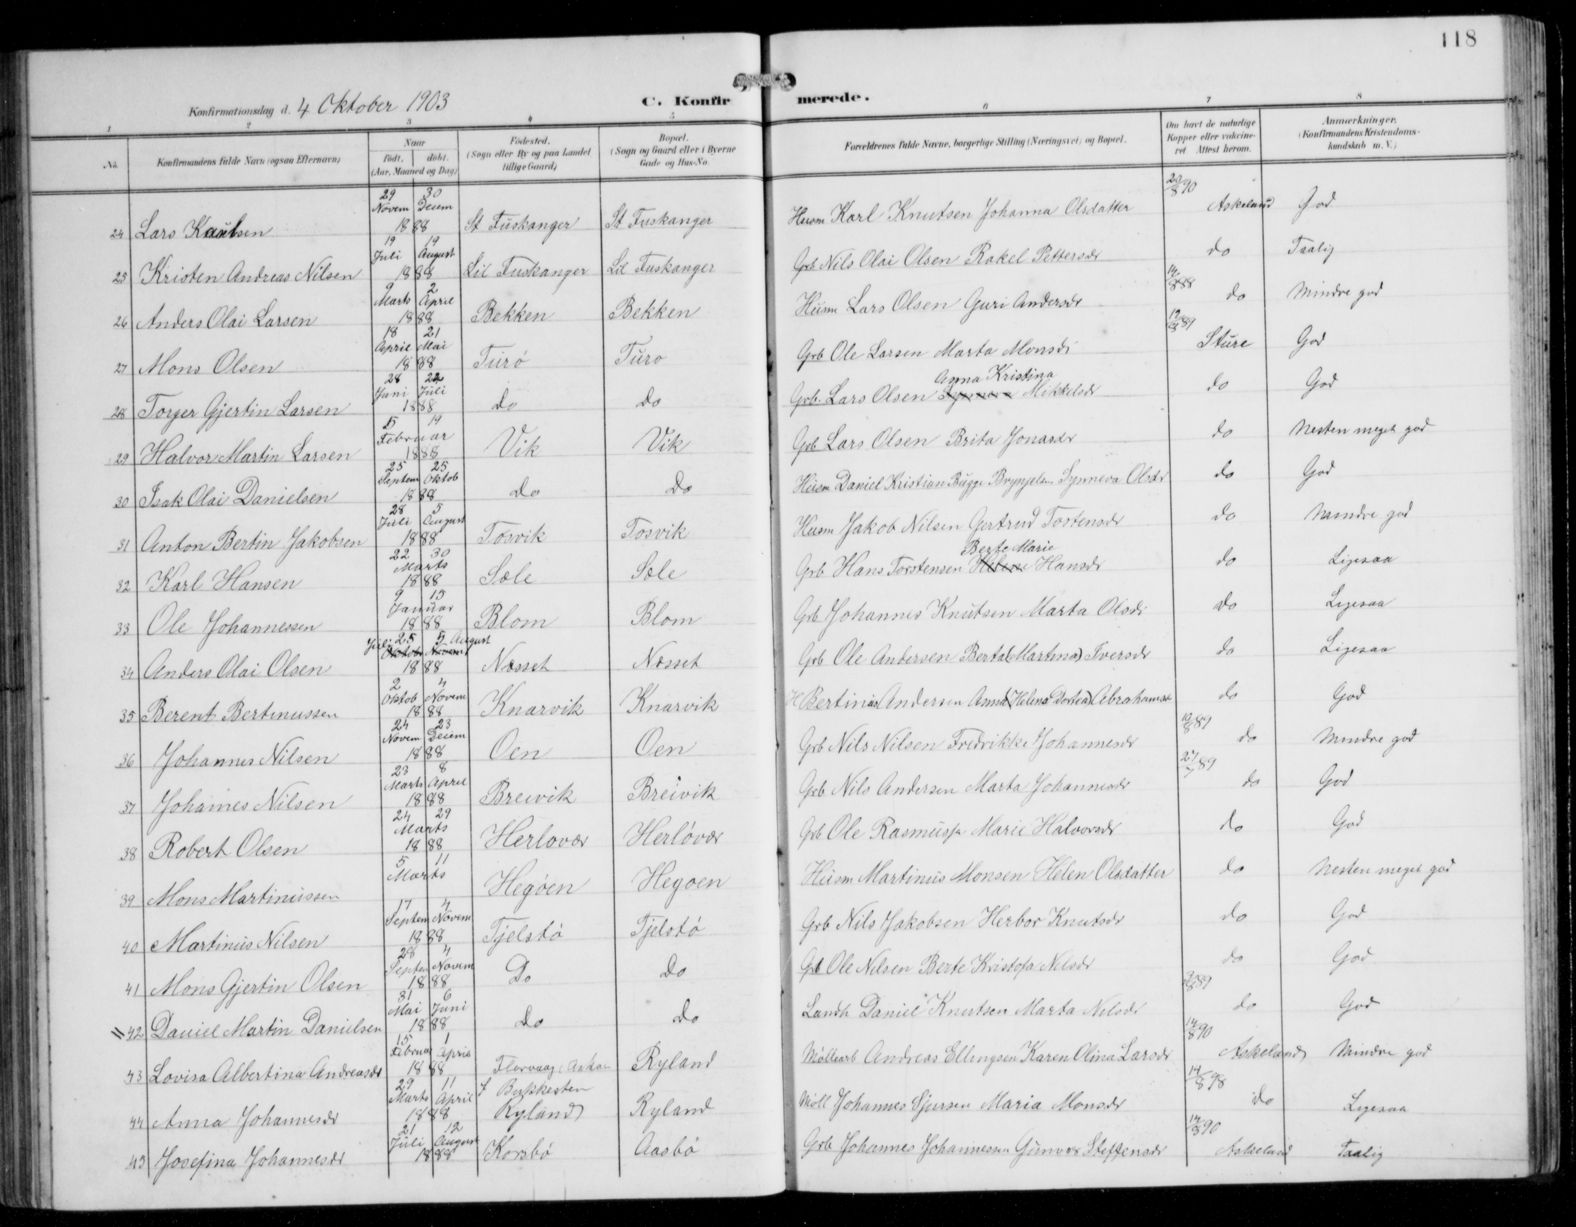 118
Konfirmationsdag d. 4 Oktober 1903 C. Konfirmerede.
1 2 3 4 5 6 7 8
No. Konfirmandens fulde Navn (ogsaa Efternavn) Naar født, døbt. (Aar, Maaned og Dag) Fødested. (Sogn eller By og paa Landet tillige Gaard) Bopæl. (Sogn og Gaard eller i Byerne Gade og Hus-No. Forældrenes fulde Navne, borgerlige Stilling (Næringsvei) og Bopæl. Om havt de naturlige Kopper eller vaccineret Attest herom. Anmærkninger. (Konfirmandens Kristendomskundskab m. V.)
24 Lars Karlsen 29 Novem 30 Decem 1888 St Fuskanger St Fuskanger Husm Karl Knutsen Johanna Olsdatter 20/8 90 Askeland God
25 Kristen Andreas Nilsen 19 Juli 19 August 1888 Lil Fuskanger Lil Fuskanger Grb Nils Olai Olsen Rakel Pettersdr do Taalig
26 Anders Olai Larsen 9 Marts 2 April 1888 Bekken Bekken Husm Lars Olsen Guri Andersdr 14/8 88 do Mindre god
27 Mons Olsen 18 April 21 Mai 1888 Turø Turo Grb Ole Larsen Marta Monsdr 89 Sture God
28 Torger Gjertin Larsen 28 Juni 22 Juli 1888 do do Grb Lars Olsen Anna Kristina Mikkelsdr do God
29 Halvor Martin Larsen 5 14 Februar 1888 Vik Vik Grb Lars Olsen Brita Jonasdr do Nesten meget god
30 Isak Olai Danielsen 25 Septem 25 Oktob 1888 do do Husm Daniel Kristian Bugge Synneva Olsdr do God
31 Anton Bertin Jakobsen 28 Juli 5 August 1888 Tosvik Tosvik Husm Jakob Nilsen Gertrud Tostensdr do Mindre god
32 Karl Hansen 22 30 Marts 1888 Sæle Sæle Grb Hans Torstensen Berte Marie Hansdr do Ligesaa
33 Ole Johannessen 9 15 Januar 1888 Blom Blom Grb Johannes Knutsen Marta Olsdr do Ligesaa
34 Anders Olai Olsen Juli 25 5 August 1888 Næsset Næsset Grb Ole Andersen Berta (Martina) Iversdr do Ligesaa
35 Berent Bertinussen 2 Oktob 4 Novem 1888 Knarvik Knarvik H Bertinus Andersen Anna (Helena Dortea) Abrahamsdr do God
36 Johannes Nilsen 24 Novem 23 Decem 1888 Oen Oen Grb Nils Nilsen Fredrikke Johannesdr 10/8 89 do Mindre god
37 Johannes Nilsen 23 Marts 8 April 1888 Breivik Breivik Grb Nils Andersen Marta Johannesdr 27/7 89 do God
38 Robert Olsen 24 29 Marts 1888 Herlovær Herløvær Grb Ole Rasmuss Marie Halvorsdr do God
39 Mons Martinussen 5 11 Marts Hegøen Hegoen Husm Martinus Monsen Helen Olsdatter do Nesten meget god
40 Martinus Nilsen 17 Septem 4 Novem 1888 Tjelstø Tjelstó Grb Nils Jakobsen Herbor Knutsdr do God
41 Mons Gjertin Olsen 28 Septem 4 Novem 1888 Do do Grb Ole Nilsen Berte Kristofa Nilsdr do God
42 Daniel Martin Danielsen 31 Mai 6 Juni 1888 do do Landh Daniel Knutsen Marta Nilsdr 89 do God
43 Lovisa Albertina Andreasdr 15 Februar 1 April 1888 Florvaag i Askø Ryland Møllearb Andreas Ellingsen Karen Olina Larsdr 14/8 90 Askeland Mindre god
44 Anna Johannesdr 29 Marts 11 April 1888 Ryland Ryland Møll Johannes Sjursen Maria Monsdr 14/8 98 do Ligesaa
45 Josefina Johannesdr 21 Juli 12 August 1888 Korsbø Aasbó Grb Johannes Johannessen Gunvor Steffensdr 14/8 90 Askeland Taalig